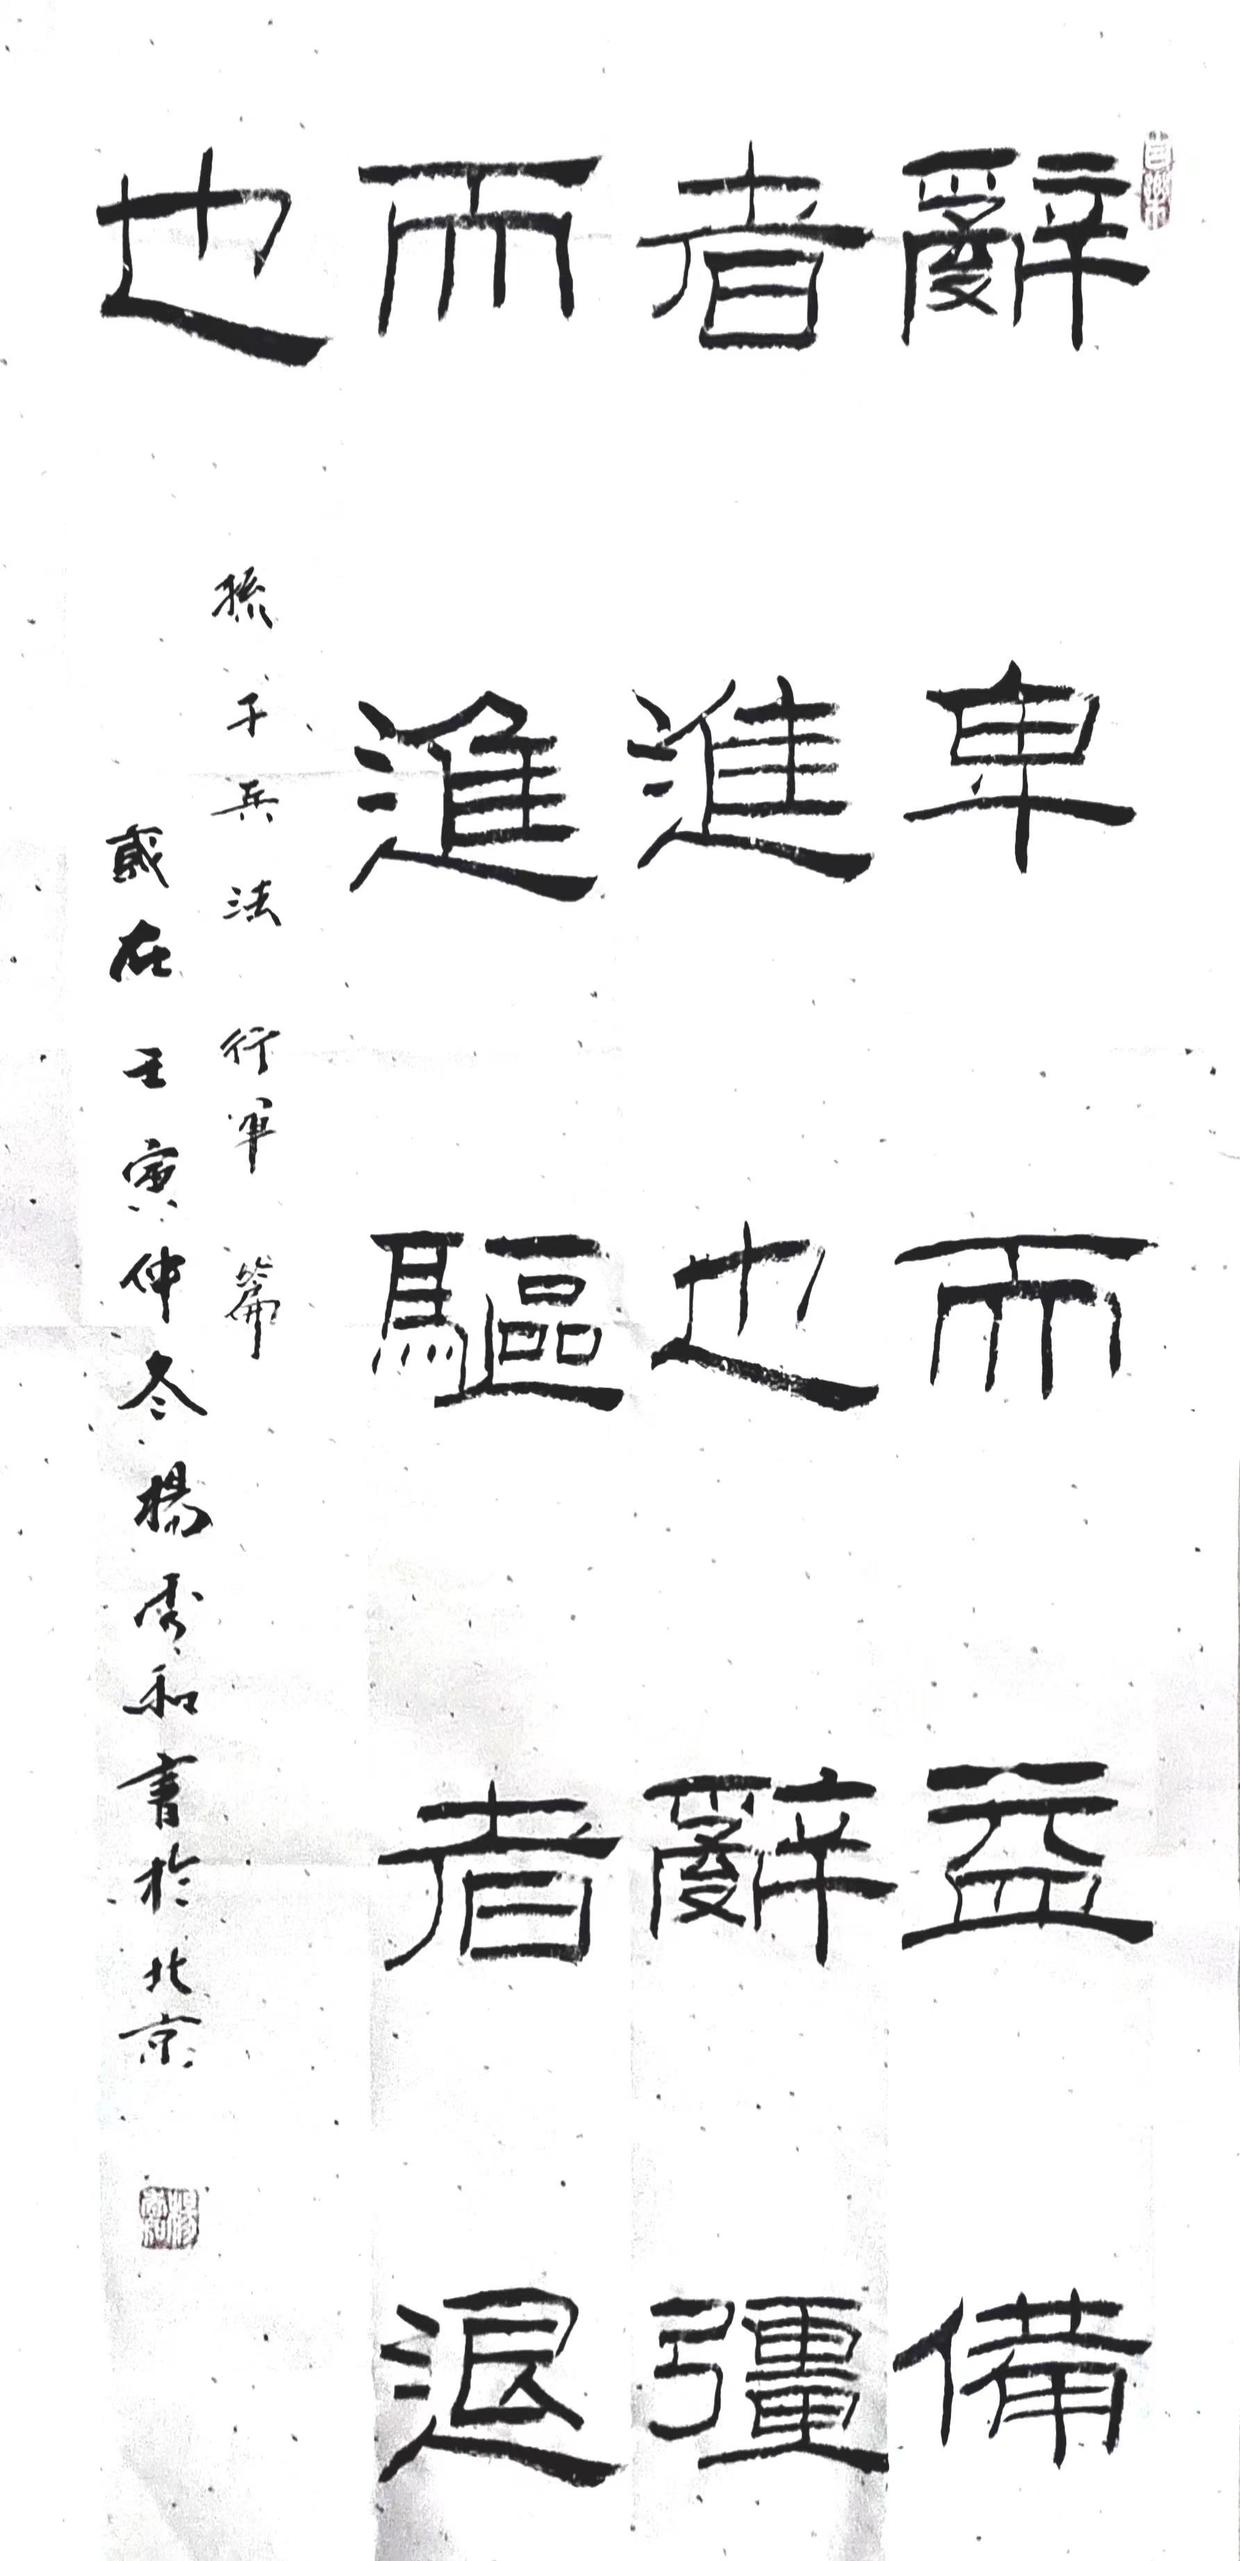 辭卑而益備
者進也辭彊
而進驅者退
也
孫子兵法行軍篇
歲在壬寅仲冬楊秀和書於北京